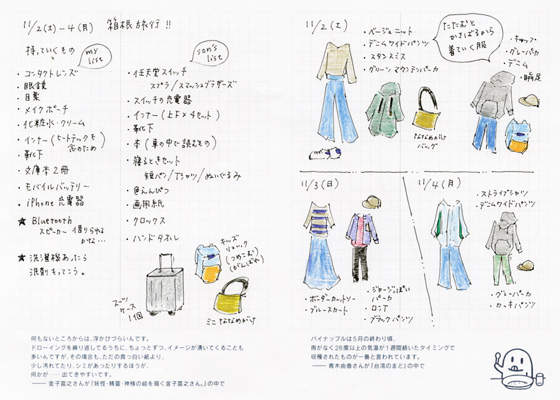 11/2(土)〜4(月) 箱根旅行!!
持っていくもの
my list
・コンタクトレンズ
・眼鏡
・目薬
・メイクポーチ
・化粧水・クリーム
・インナー(ヒートテックも含のため)
・靴下
・文庫本2冊
・モバイルバッテリー
・iPhone充電器
★ Bluetooth
スピーカー 借りられる
★ 洗濯機あったら
洗剤もってこう。
son's list
・任天堂スイッチ
スプラ/スマッシュブラザーズ
・スイッチの充電器
・インナー(上下×4セット)
・靴下
・本(車の中で読むもの)
・寝るときセット
短パン/Tシャツ/ぬいぐるみ
・色えんぴつ
・画用紙
・クロックス
・ハンドタオル
キッズ
リュック
(つめこむ)
スーツ
ケース
1個
ミニななめがけ
何もないところからは、浮かびづらいんです。
ドローイングを繰り返してるうちに、ちょっとずつ、イメージが湧いてくることも
多いんですが、その場合も、ただの真っ白い紙より、
少し汚れてたり、シミがあったりするほうが、
何かが……出てきやすいです。
—— 金子富之さんが『妖怪・精霊・神様の絵を描く金子富之さん。』の中で
11/2(土)
・ベージュニット
・デニムワイドパンツ
・スタンスミス
・グリーンマウンテンパーカ
たたむと
かさばるから
着ていく服
・キャップ
・グレーパーカ
・デニム
・瞬足
ななめがけ
バッグ
11/3(日)
・ボーダーカットソー
・ブルースカート
・ジョージっぽい
パーカ
・ロンT
・ブラックパンツ
11/4(月)
・ストライプシャツ
・デニムワイドパンツ
・グレーパーカ
・カーキパンツ
パイナップルは5月の終わり頃、
雨がなく28度以上の気温が1週間続いたタイミングで
収穫されたものが一番と言われています。
—— 青木由香さんが『台湾のまど』の中で